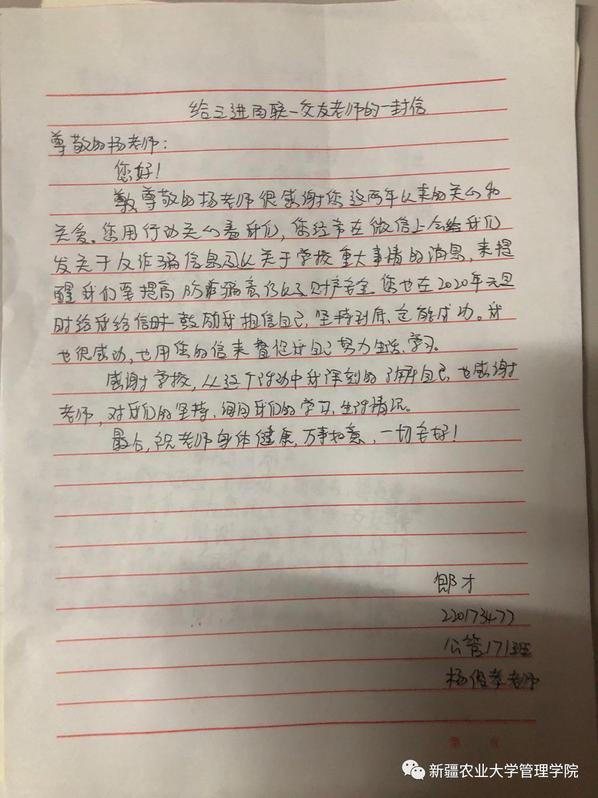 给三进两联一交友老师的一封信
尊敬的杨老师：
您好！
尊敬的杨老师很感谢您这两年以来的关心和
关爱。您用行动关心着我们，您经常在微信上会给我们
发关于反诈骗信息及以关于学校重大事情的消息，来提
醒我们要提高防诈骗意识以及财产安全。您也在2020年元旦
时给我给信时鼓励我相信自己，坚持到底，定能成功。我
也很成功，也用您的信来督促我自己努力生活、学习。
感谢学校，从这个活动中我深刻的了解自己，也感谢
老师，对我们的坚持，细问我们的学习，生活情况。
最后，祝老师身体健康，万事如意，一切安好！
郎才
220173477
公管171班
杨俊孝老师
第 页
新疆农业大学管理学院